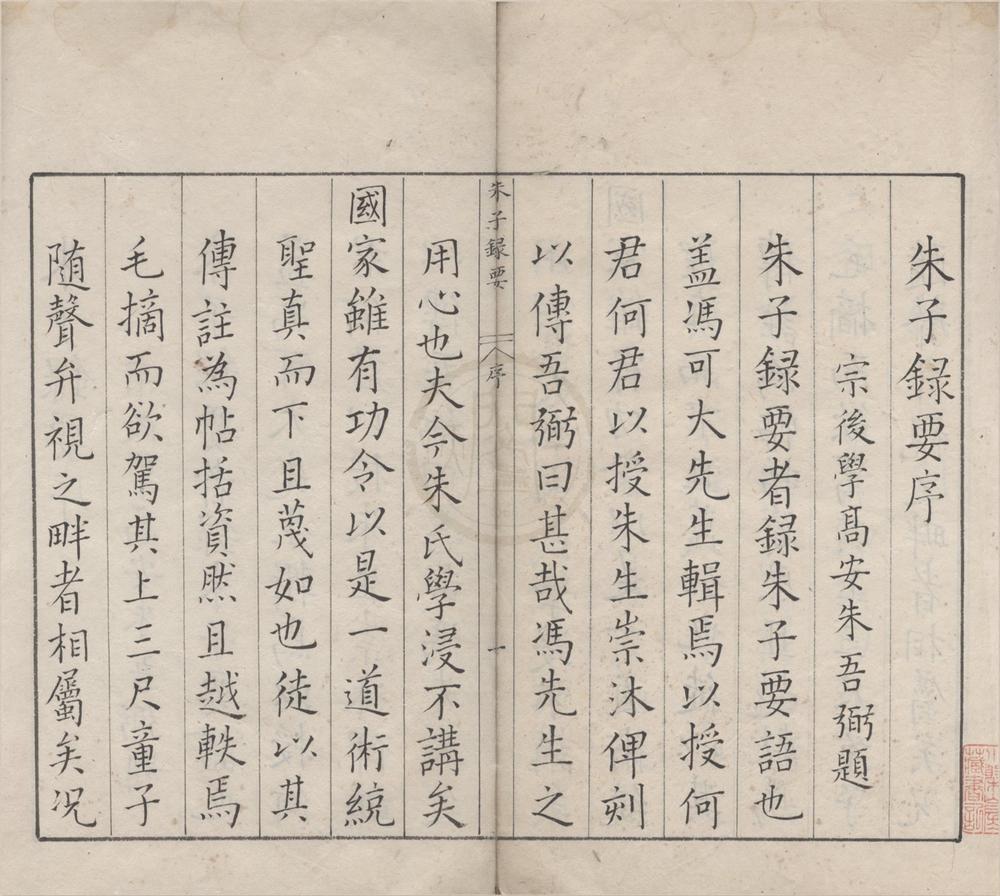 朱子録要序
宗後學髙安朱吾弼題
朱子録要者録朱子要語也
盖馮可大先生輯焉以授何
君何君以授朱生崇沐俾刻
以傳吾弼曰甚哉馮先生之
朱子録要 序 一
用心也夫今朱氏學浸不講矣
國家雖有功令以是一道術統
聖真而下且蔑如也徒以其
傳註為帖括資然且越軼焉
毛摘而欲駕其上三尺童子
随聲弁視之畔者相屬矣况